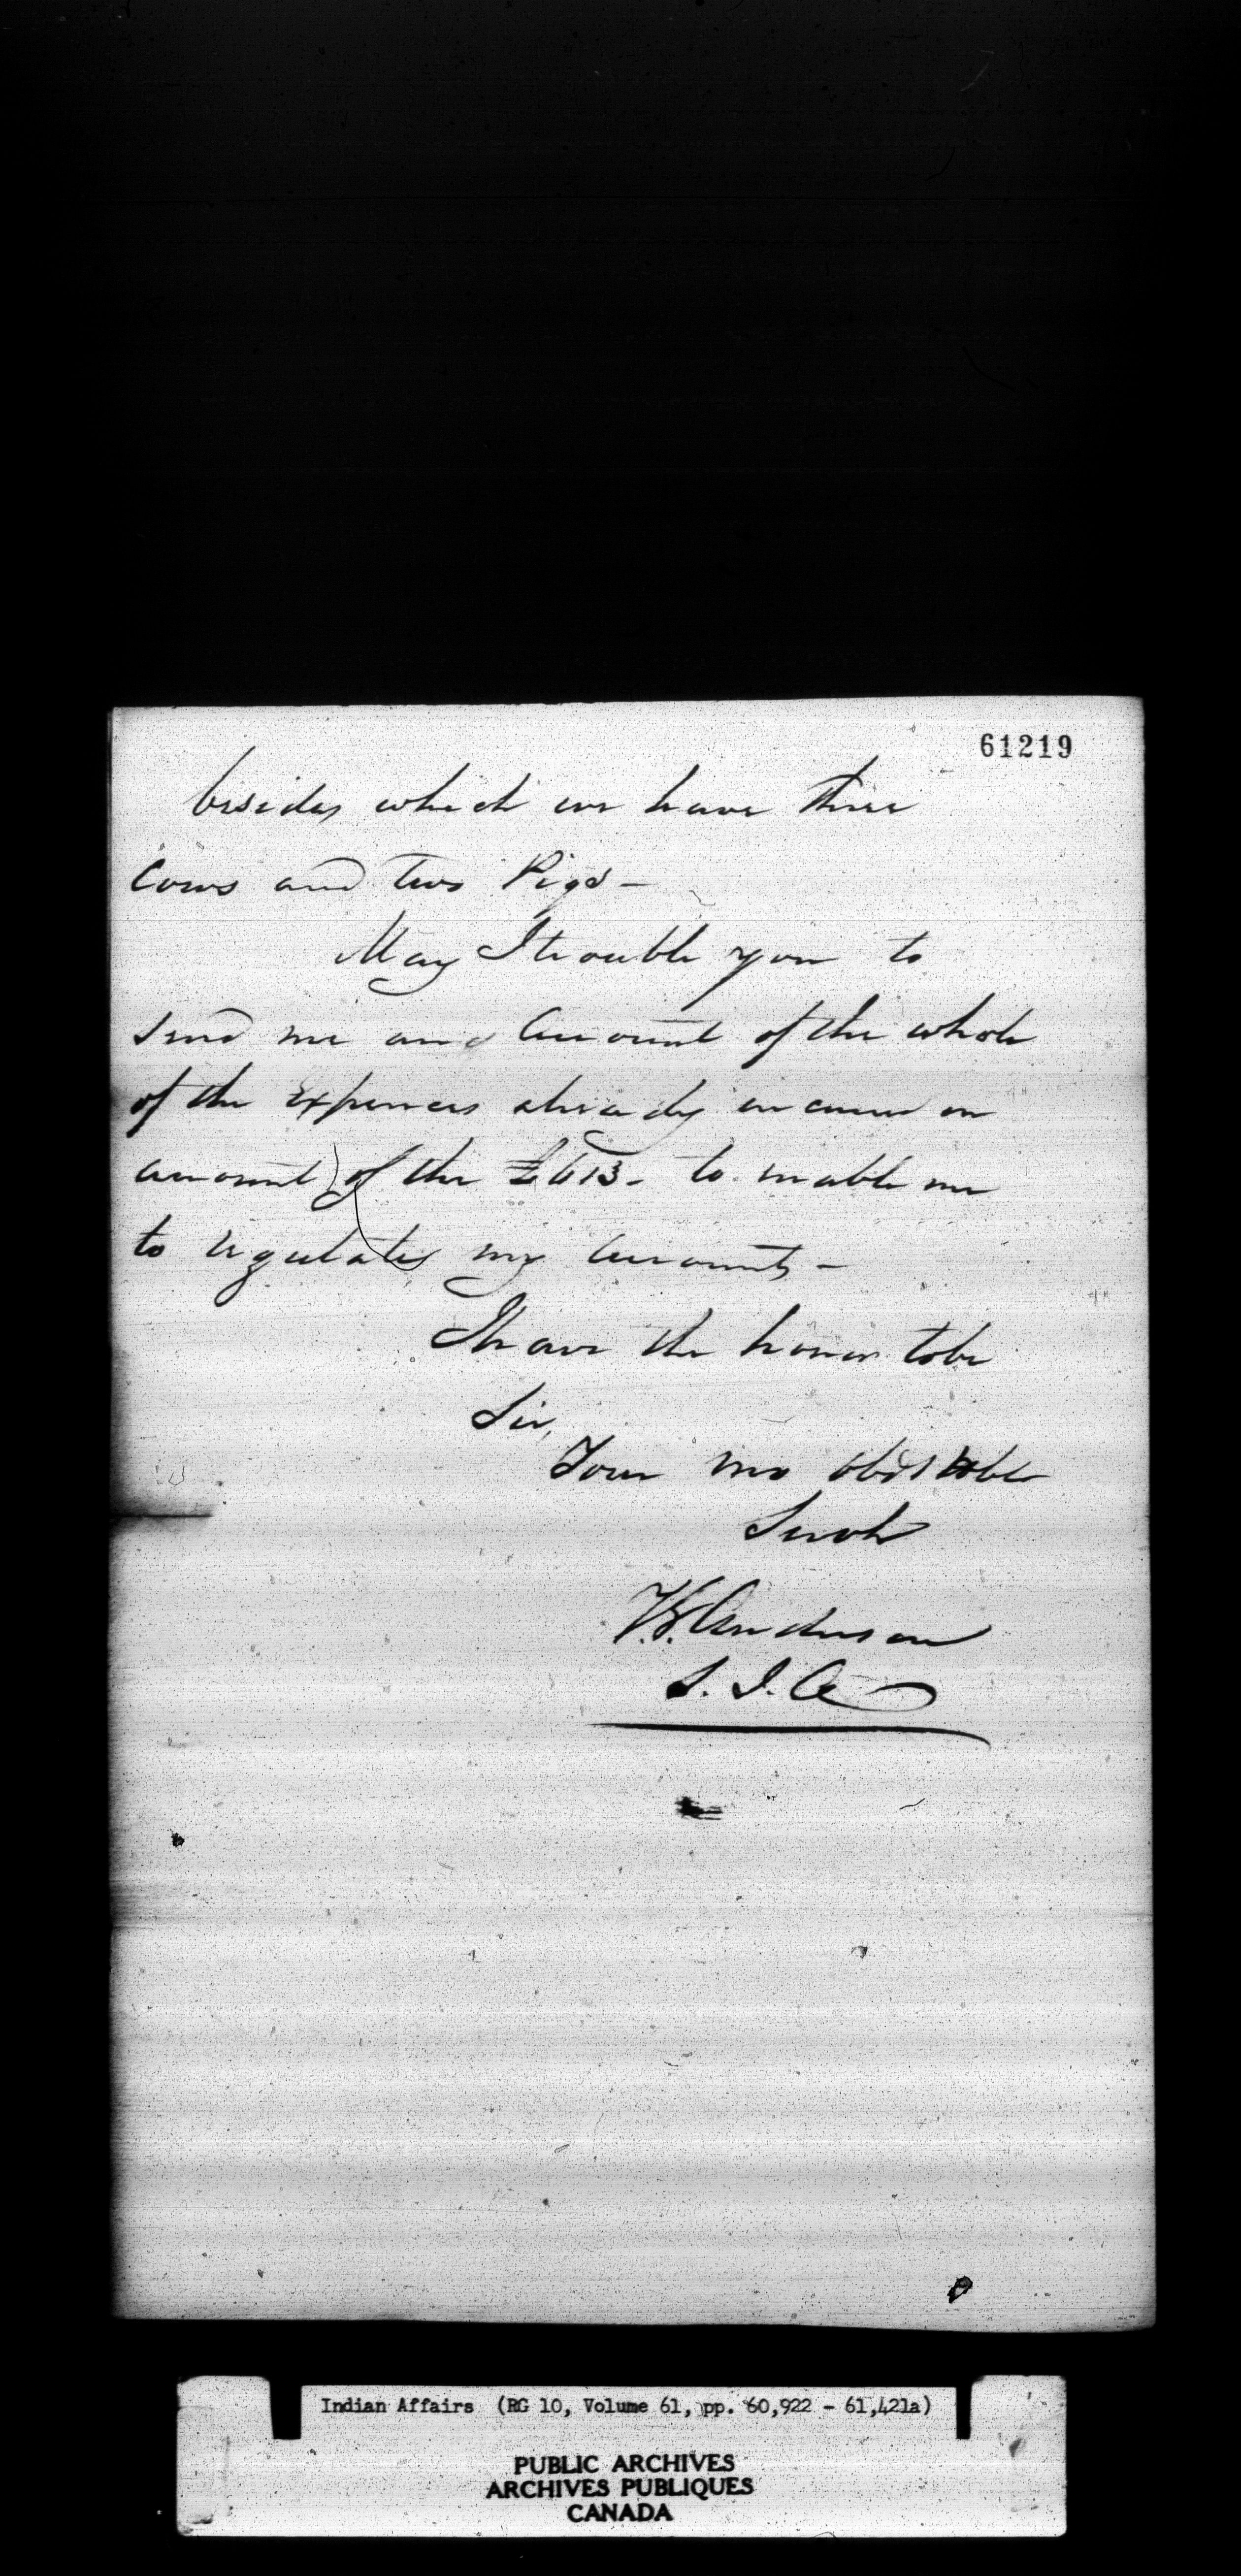 61219
besides which we have three
Cows and two Pigs -
May I trouble you to
send me an Account of the whole
of the expences already incurred on
account of the £613 - to enable me
to regulate my Accounts -
I have the honor to be
Sir,
Your mo obdt Hble
Servt
T.G. Anderson
S. I. A
Indian Affairs (RG 10, Volume 61, pp. 60,922 - 61,421a)
PUBLIC ARCHIVES
ARCHIVES PUBLIQUES
CANADA